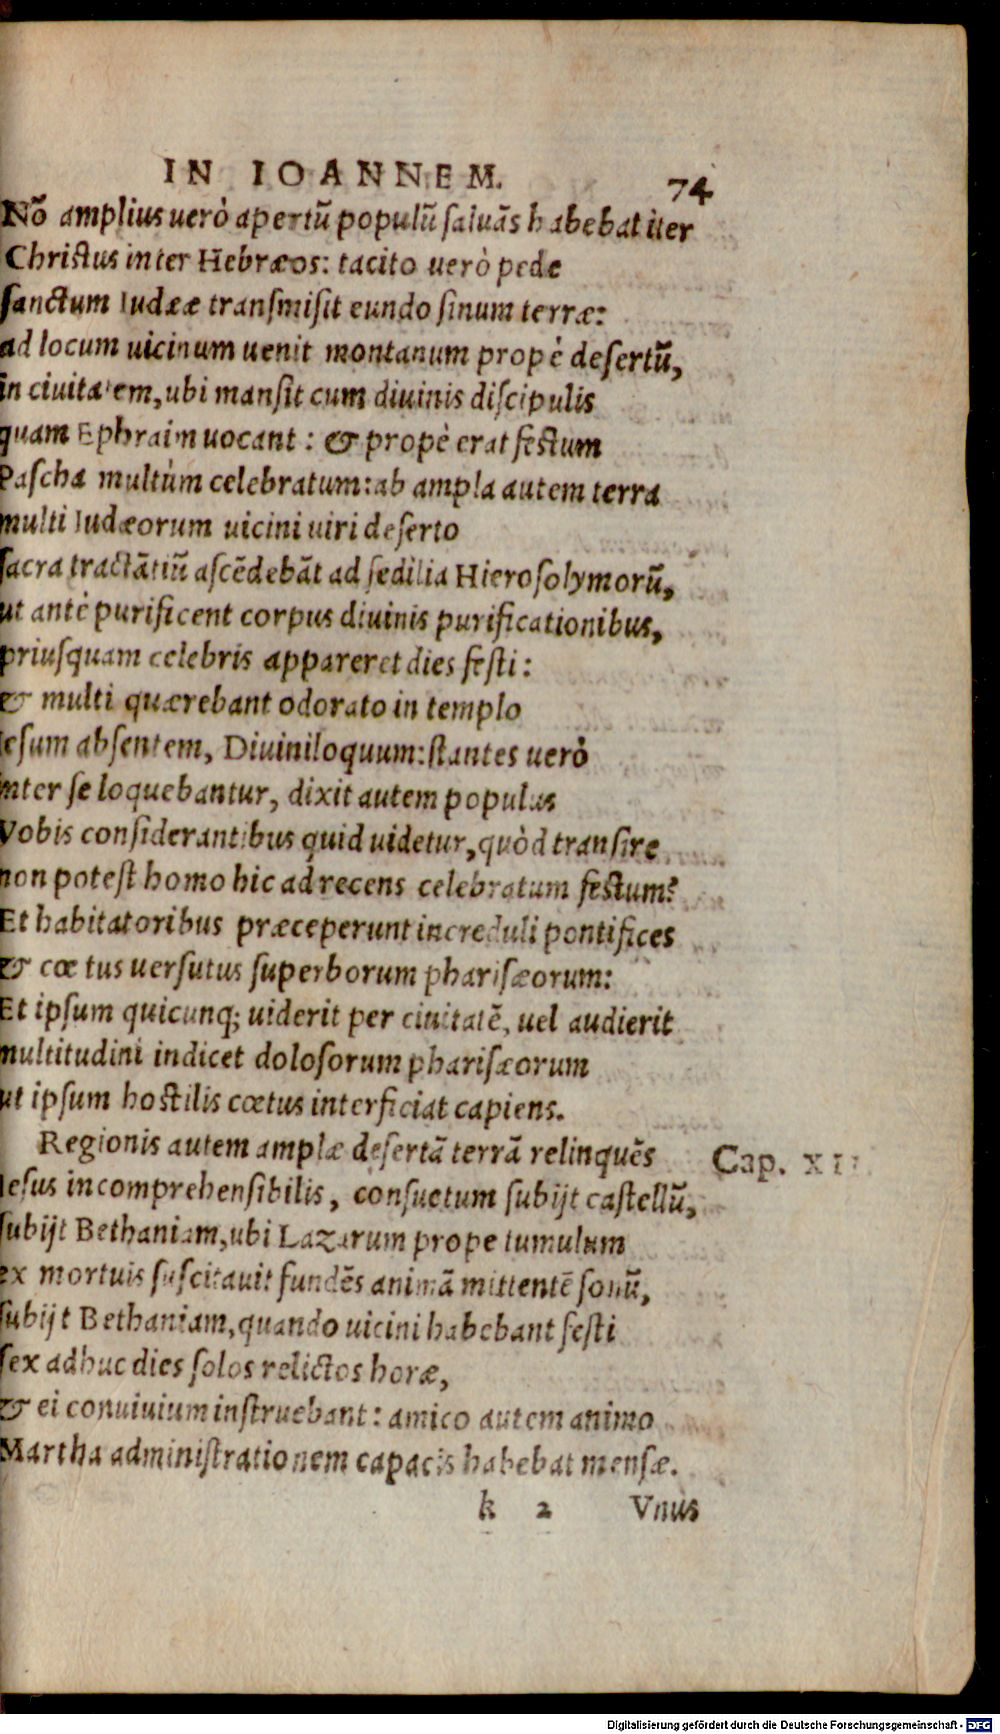 IN IOANNEM.
74
Nõ amplius uerò apertũ populũ saluãs habebat iter
Christus inter Hebræos: tacito uerò pede
sanctum Iudææ transmisit eundo sinum terræ:
ad locum uicinum uenit montanum propè desertũ,
in ciuitatem, ubi mansit cum diuinis discipulis
quam Ephraim uocant: & propè erat festum
Pascha multùm celebratum: ab ampla autem terra
multi Iudæorum uicini uiri deserto
sacra tractãtiũ ascẽdebãt ad sedilia Hierosolymorũ,
ut antè purificent corpus diuinis purificationibus,
priusquam celebris appareret dies festi:
& multi quærebant odorato in templo
Iesum absentem, Diuiniloquum: stantes uerò
inter se loquebantur, dixit autem populus
Vobis considerantibus quid uidetur, quòd transire
non potest homo hic ad recens celebratum festum?
Et habitatoribus præceperunt increduli pontifices
& cœtus uersutus superborum pharisæorum:
Et ipsum quicunq; uiderit per ciuitatẽ, uel audierit
multitudini indicet dolosorum pharisæorum
ut ipsum hostilis cœtus interficiat capiens.
Regionis autem amplæ desertã terrã relinquẽs
Cap. XII.
Iesus incomprehensibilis, consuetum subijt castellũ,
subijt Bethaniam, ubi Lazarum prope tumulum
ex mortuis suscitauit fundẽs animã mittentẽ sonũ,
subijt Bethaniam, quando uicini habebant festi
sex adhuc dies solos relictos horæ,
& ei conuiuium instruebant: amico autem animo
Martha administrationem capacis habebat mensæ.
k 2
Vnus
Digitalisierung gefördert durch die Deutsche Forschungsgemeinschaft - DFG